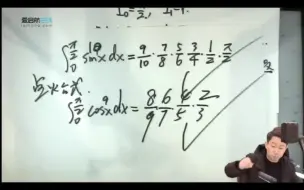 I₀=π/2, I₁=1.
∫₀^{π/2} sin¹⁰x dx = 9/10 · 7/8 · 5/6 · 3/4 · 1/2 · π/2
点火公式.
∫₀^{π/2} cos⁹x dx = 8/9 · 6/7 · 4/5 · 2/3